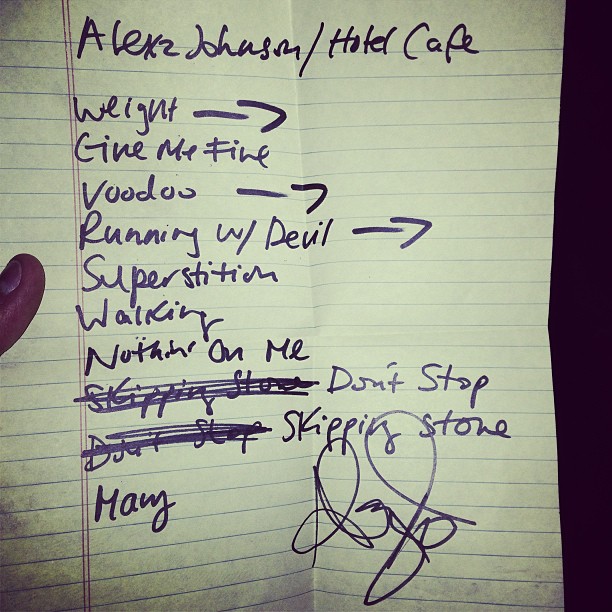 Alexz Johnson / Hotel Cafe
Weight →
Give Me Fire
Voodoo →
Running w/ Devil →
Superstition
Walking
Nothin' On Me
Skipping Stone Don't Stop
Don't Stop Skipping Stone
Mary